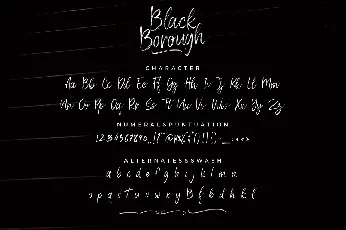 Black
Borough
CHARACTER
Aa Bb Cc Dd Ee Ff Gg Hh Ii Jj Kk Ll Mm
Nn Oo Pp Qq Rr Ss Tt Uu Vv Ww Xx Yy Zz
NUMERALSPUNTUATION
1234567890
ALTERNATESSSWASH
a b c d e f g h i j k l m n
o p q r s t u v w x y B f b d h k l